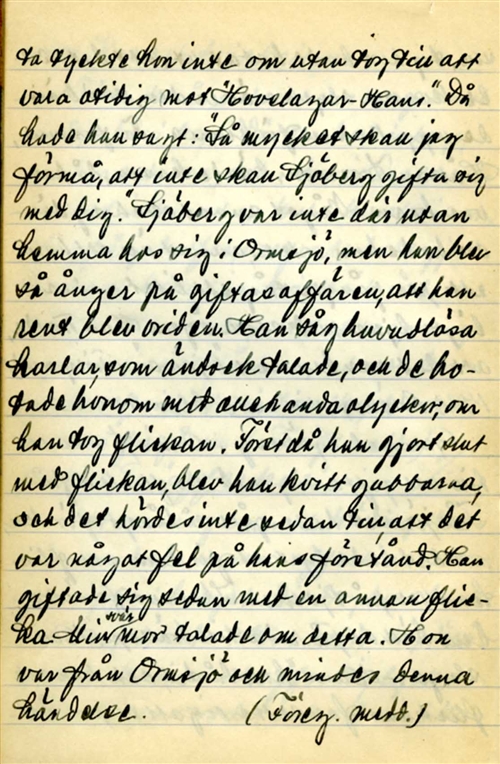 ta tyckte hon inte om utan tog till att
vara otidig mot "Hovslagar-Hans." Då
hade han sagt: "Så mycket skall jag
förmå, att inte skall Sjöberg gifta sig
med dig." Sjöberg var inte där utan
hemma hos sig i Ormsjö, men han blev
så ånger på giftasaffären, att han
rent blev vriden. Han såg huvudlösa
karlar, som ändock talade, och de ho-
tade honom med allehanda olyckor, om
han tog flickan. Först då han gjort slut
med flickan, blev han kvitt gubbarna,
och det hördes inte sedan till, att det
var något fel på hans förstånd. Han
giftade sig sedan med en annan flic-
ka. Min svärmor talade om detta. Hon
var från Ormsjö och mindes denna
händelse. (Föreg. medd.)